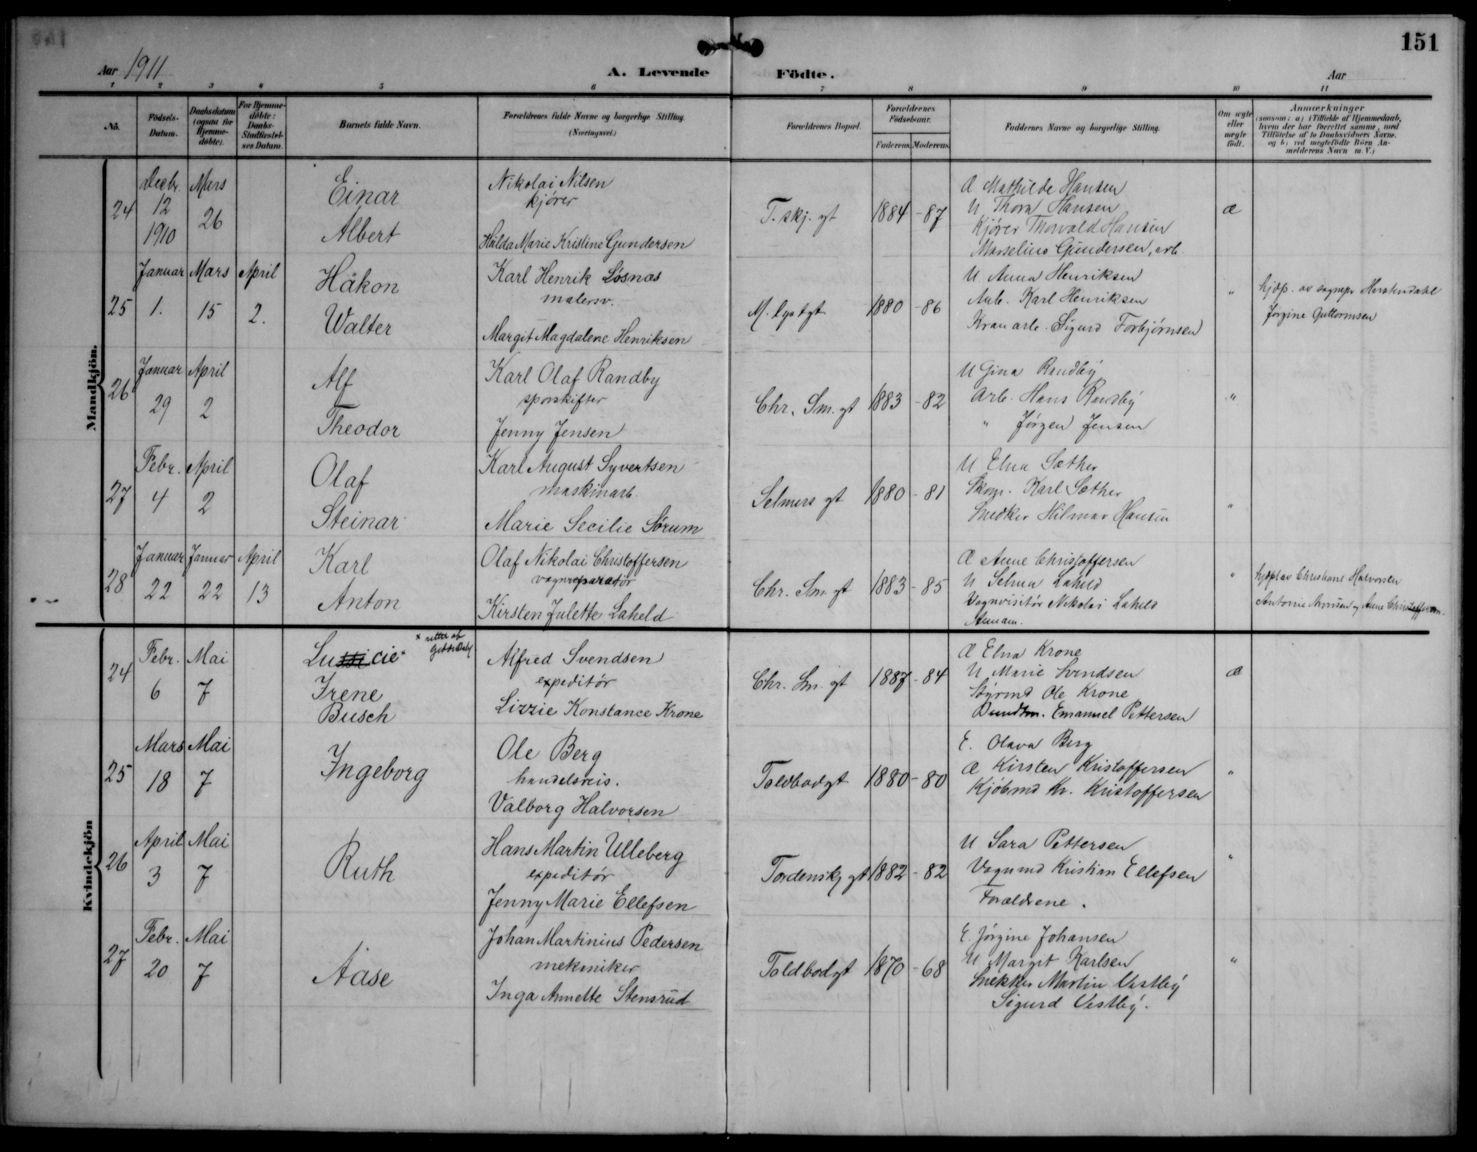 151
Aar 1911
A. Levende Födte.
Aar
1 2 3 4 5 6 7 8 9 10 11
No.
Födsels-
Datum.
Daabsdatum
(ogsaa for
Hjemme-
döbte).
For Hjemme-
döbte:
Daabs-
Stadfæstel-
ses Datum.
Barnets fulde Navn.
Forældrenes fulde Navne og borgerlige Stilling.
(Næringsvei.)
Forældrenes Bopæl.
Forældrenes
Födselsaar.
Faderens. Moderens.
Faddernes Navne og borgerlige Stilling.
Om ægte
eller
uægte
født.
Anmærkninger
Mandkjön.
24
Decbr. 12 1910
Mars 26
Einar
Albert
Nikolai Nilsen
kjører
Hulda Marie Kristine Gundersen
T. skj. gt
1884 - 87
Æ Mathilde Hansen
U Thora Hansen
Kjører Thorvald Hansen
Marselius Gundersen, arb.
æ
25
Januar 1.
Mars 15
April 2.
Håkon
Walter
Karl Henrik Losnas
malersv.
Margit Magdalene Henriksen
M. Lyst gt
1880 - 86
U Anna Henriksen
Arb. Karl Henriksen
Kran arb. Sigurd Torbjørnsen
"
Jørgine Guttormsen
26
Januar 29
April 2
Alf
Theodor
Karl Olaf Randby
sporskifter
Jenny Jensen
Chr. Sm. gt
1883 - 82
U Gina Randby
Arb. Hans Randby
" Jørgen Jensen
"
27
Febr. 4
April 2
Olaf
Steinar
Karl August Syvertsen
maskinarb
Marie Secilie Sørum
Selmers gt
1880 - 81
U Elna Sæther
Skom. Karl Sæther
Snedker Hilmar Hansen
"
28
Januar 22
Januar 22
April 13
Karl
Anton
Olaf Nikolai Christoffersen
vognreparatør
Kirsten Julette Laheld
Chr. Sm. gt
1883 - 85
Æ Anne Christoffersen
U Selma Laheld
Vognvisitør Nikolai Laheld
"
hjdpt av Christiane Halvorsen
Kvindekjön
24
Febr. 6
Mai 7
Lucie
Irene
Busch
Alfred Svendsen
expeditør
Lizzie Konstance Krone
Chr. Sm. gt
1887 - 84
Æ Elna Krone
U Marie Svendsen
Styrmd Ole Krone
Emanuel Pettersen
æ
25
Mars 18
Mai 7
Ingeborg
Ole Berg
handelsreis.
Valborg Halvorsen
Toldbodgt
1880 - 80
E. Olava Berg
Æ Kirsten Kristoffersen
Kjøbmd Kr. Kristoffersen
"
26
April 3
Mai 7
Ruth
Hans Martin Ulleberg
expeditør
Jenny Marie Ellefsen
Tordenskj gt
1882 - 82
U Sara Pettersen
Vognmd Kristian Ellefsen
Forældrene.
"
27
Febr. 20
Mai 7
Aase
Johan Martinius Pedersen
mekaniker
Inga Annette Stensrud
Toldbodgt
1870 - 68
E. Jørgine Johansen
U Margit Karlsen
Snekker Martin Vestby
Sigurd Vestby.
"